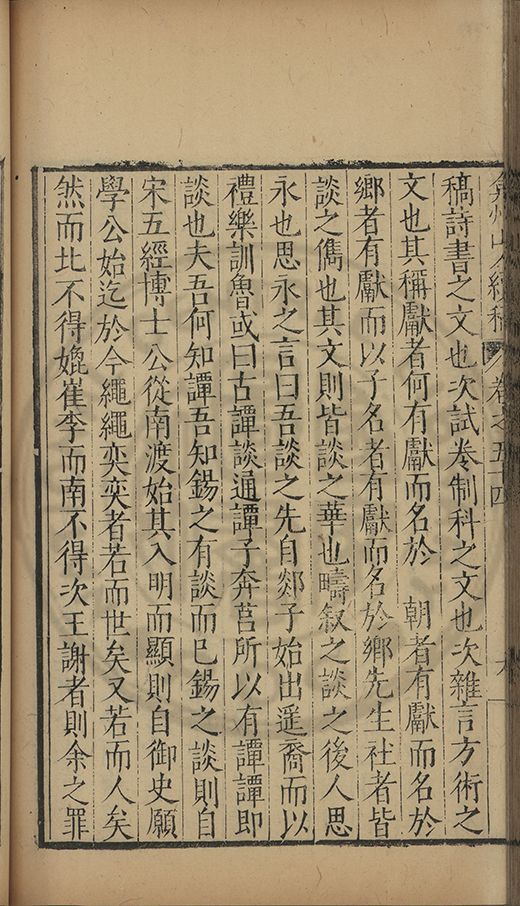 弇州山人續稿 卷之五十四
稿詩書之文也次試卷制科之文也次雜言方術之
文也其稱獻者何有獻而名於 朝者有獻而名於
鄉者有獻而以子名者有獻而名於鄉先生社者皆
談之儁也其文則皆談之華也疇叙之談之後人思
永也思永之言曰吾談之先自郯子始出遥裔而以
禮樂訓魯或曰古譚談通譚子奔莒所以有譚譚即
談也夫吾何知譚吾知錫之有談而已錫之談則自
宋五經博士公從南渡始其入明而顯則自御史願
學公始迄於今繩繩奕奕者若而世矣又若而人矣
然而北不得媲崔李而南不得次王謝者則余之罪